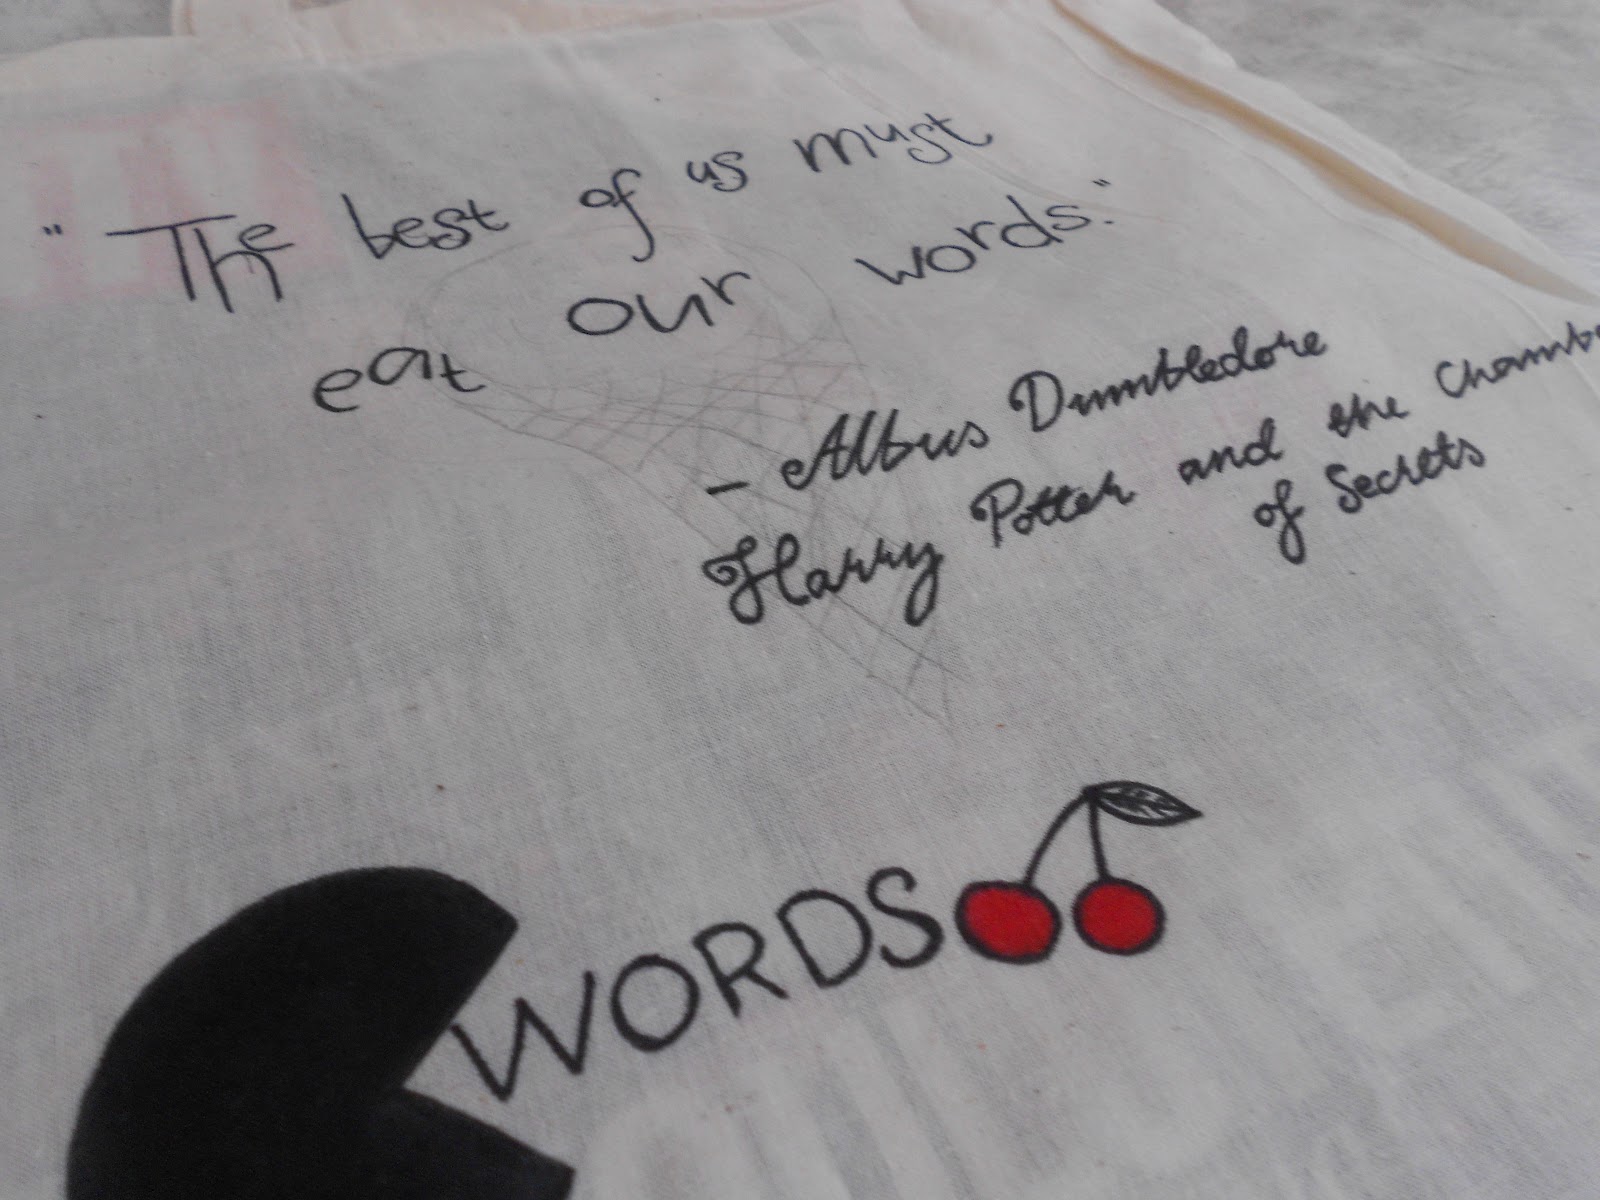 "The best of us must
eat our words."
- Albus Dumbledore
Harry Potter and the Chamb
of Secrets
WORDS